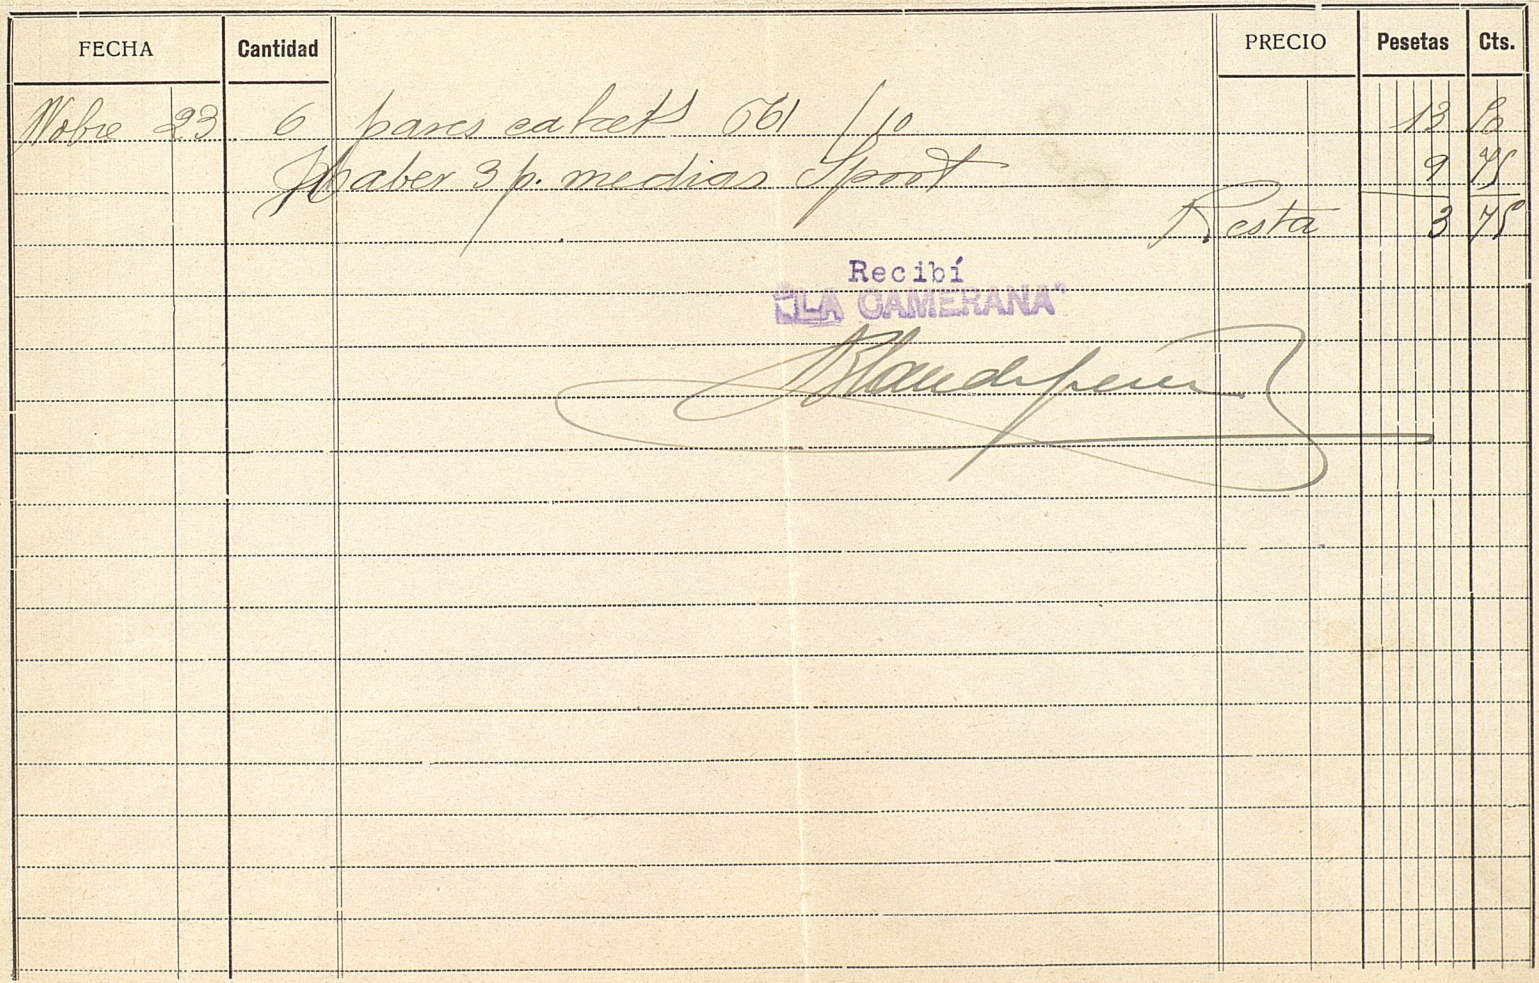 FECHA Cantidad PRECIO Pesetas Cts.
Nobre 23 6 pares calcet 661 /10 13 50
Haber 3 p. medias Sport 9 75
Resta 3 75
Recibí
"LA CAMERANA"